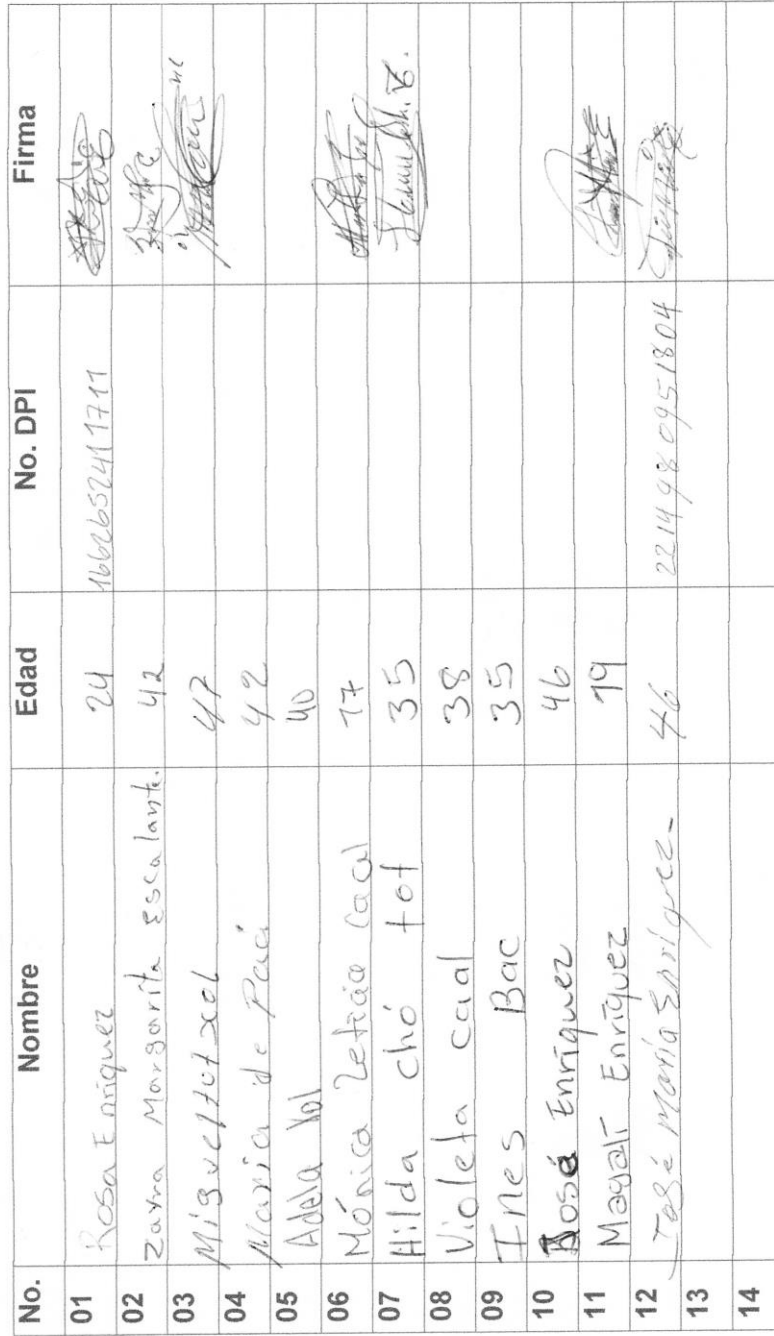 No. Nombre Edad No. DPI Firma
01 Rosa Enriquez 24 1662652411711
02 Zayra Margarita Escalante. 42
03 Miguel tot xol 47
04 Maria de Paá 42
05 Adela Xol 40
06 Mónica Leticia Caal 17
07 Hilda chó tot 35
08 Violeta caal 38
09 Ines Bac 35
10 José Enríquez 46
11 Magalí Enríquez 19
12 José María Enríquez- 46 2214980951804
13
14